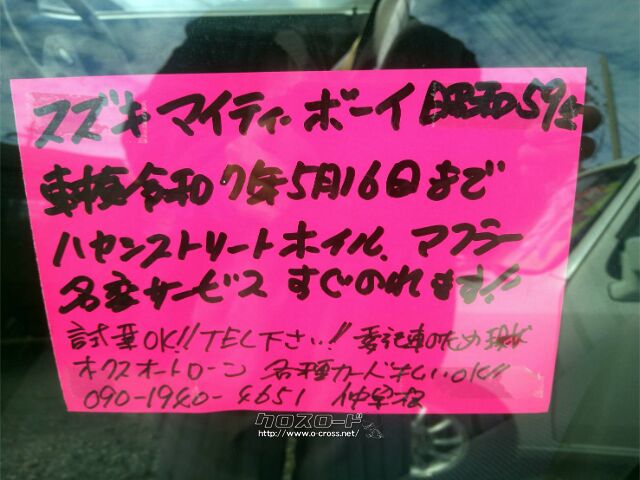 スズキ マイティ・ボーイ 昭和59年
車検令和7年5月16日まで
ハヤシストリートホイル、マフラー
名変サービス すぐのれます!!
試乗OK!! TEL下さい!! 委託車の為 現状
オクスオートローン 各種カード払いOK!!
090-1940-4651
クロスロード
http://www.o-cross.net/